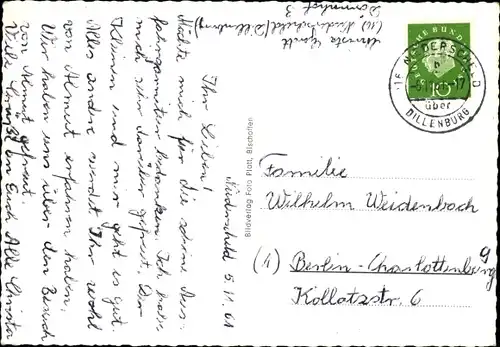 (16) Niederscheld / Dillenburg
Dammhof 3
DEUTSCHE BUNDESPOST
10
NIEDERSCHELD
b
über
DILLENBURG
Niederscheld 5. 11. 61
Ihr Lieben!
Möchte mich für die schöne
bedanken. Ich habe
mich sehr darüber gefreut. Der
Kleinen und mir geht es gut.
Alles andere werdet Ihr wohl
von Almut erfahren haben.
Wir haben uns über den Besuch
von Almut gefreut.
Viele Grüße an Euch Alle Christa
Bildverlag Foto Platt, Bischoffen
Familie
Wilhelm Weidenbach
(1) Berlin-Charlottenberg 9
Kollatzstr. 6